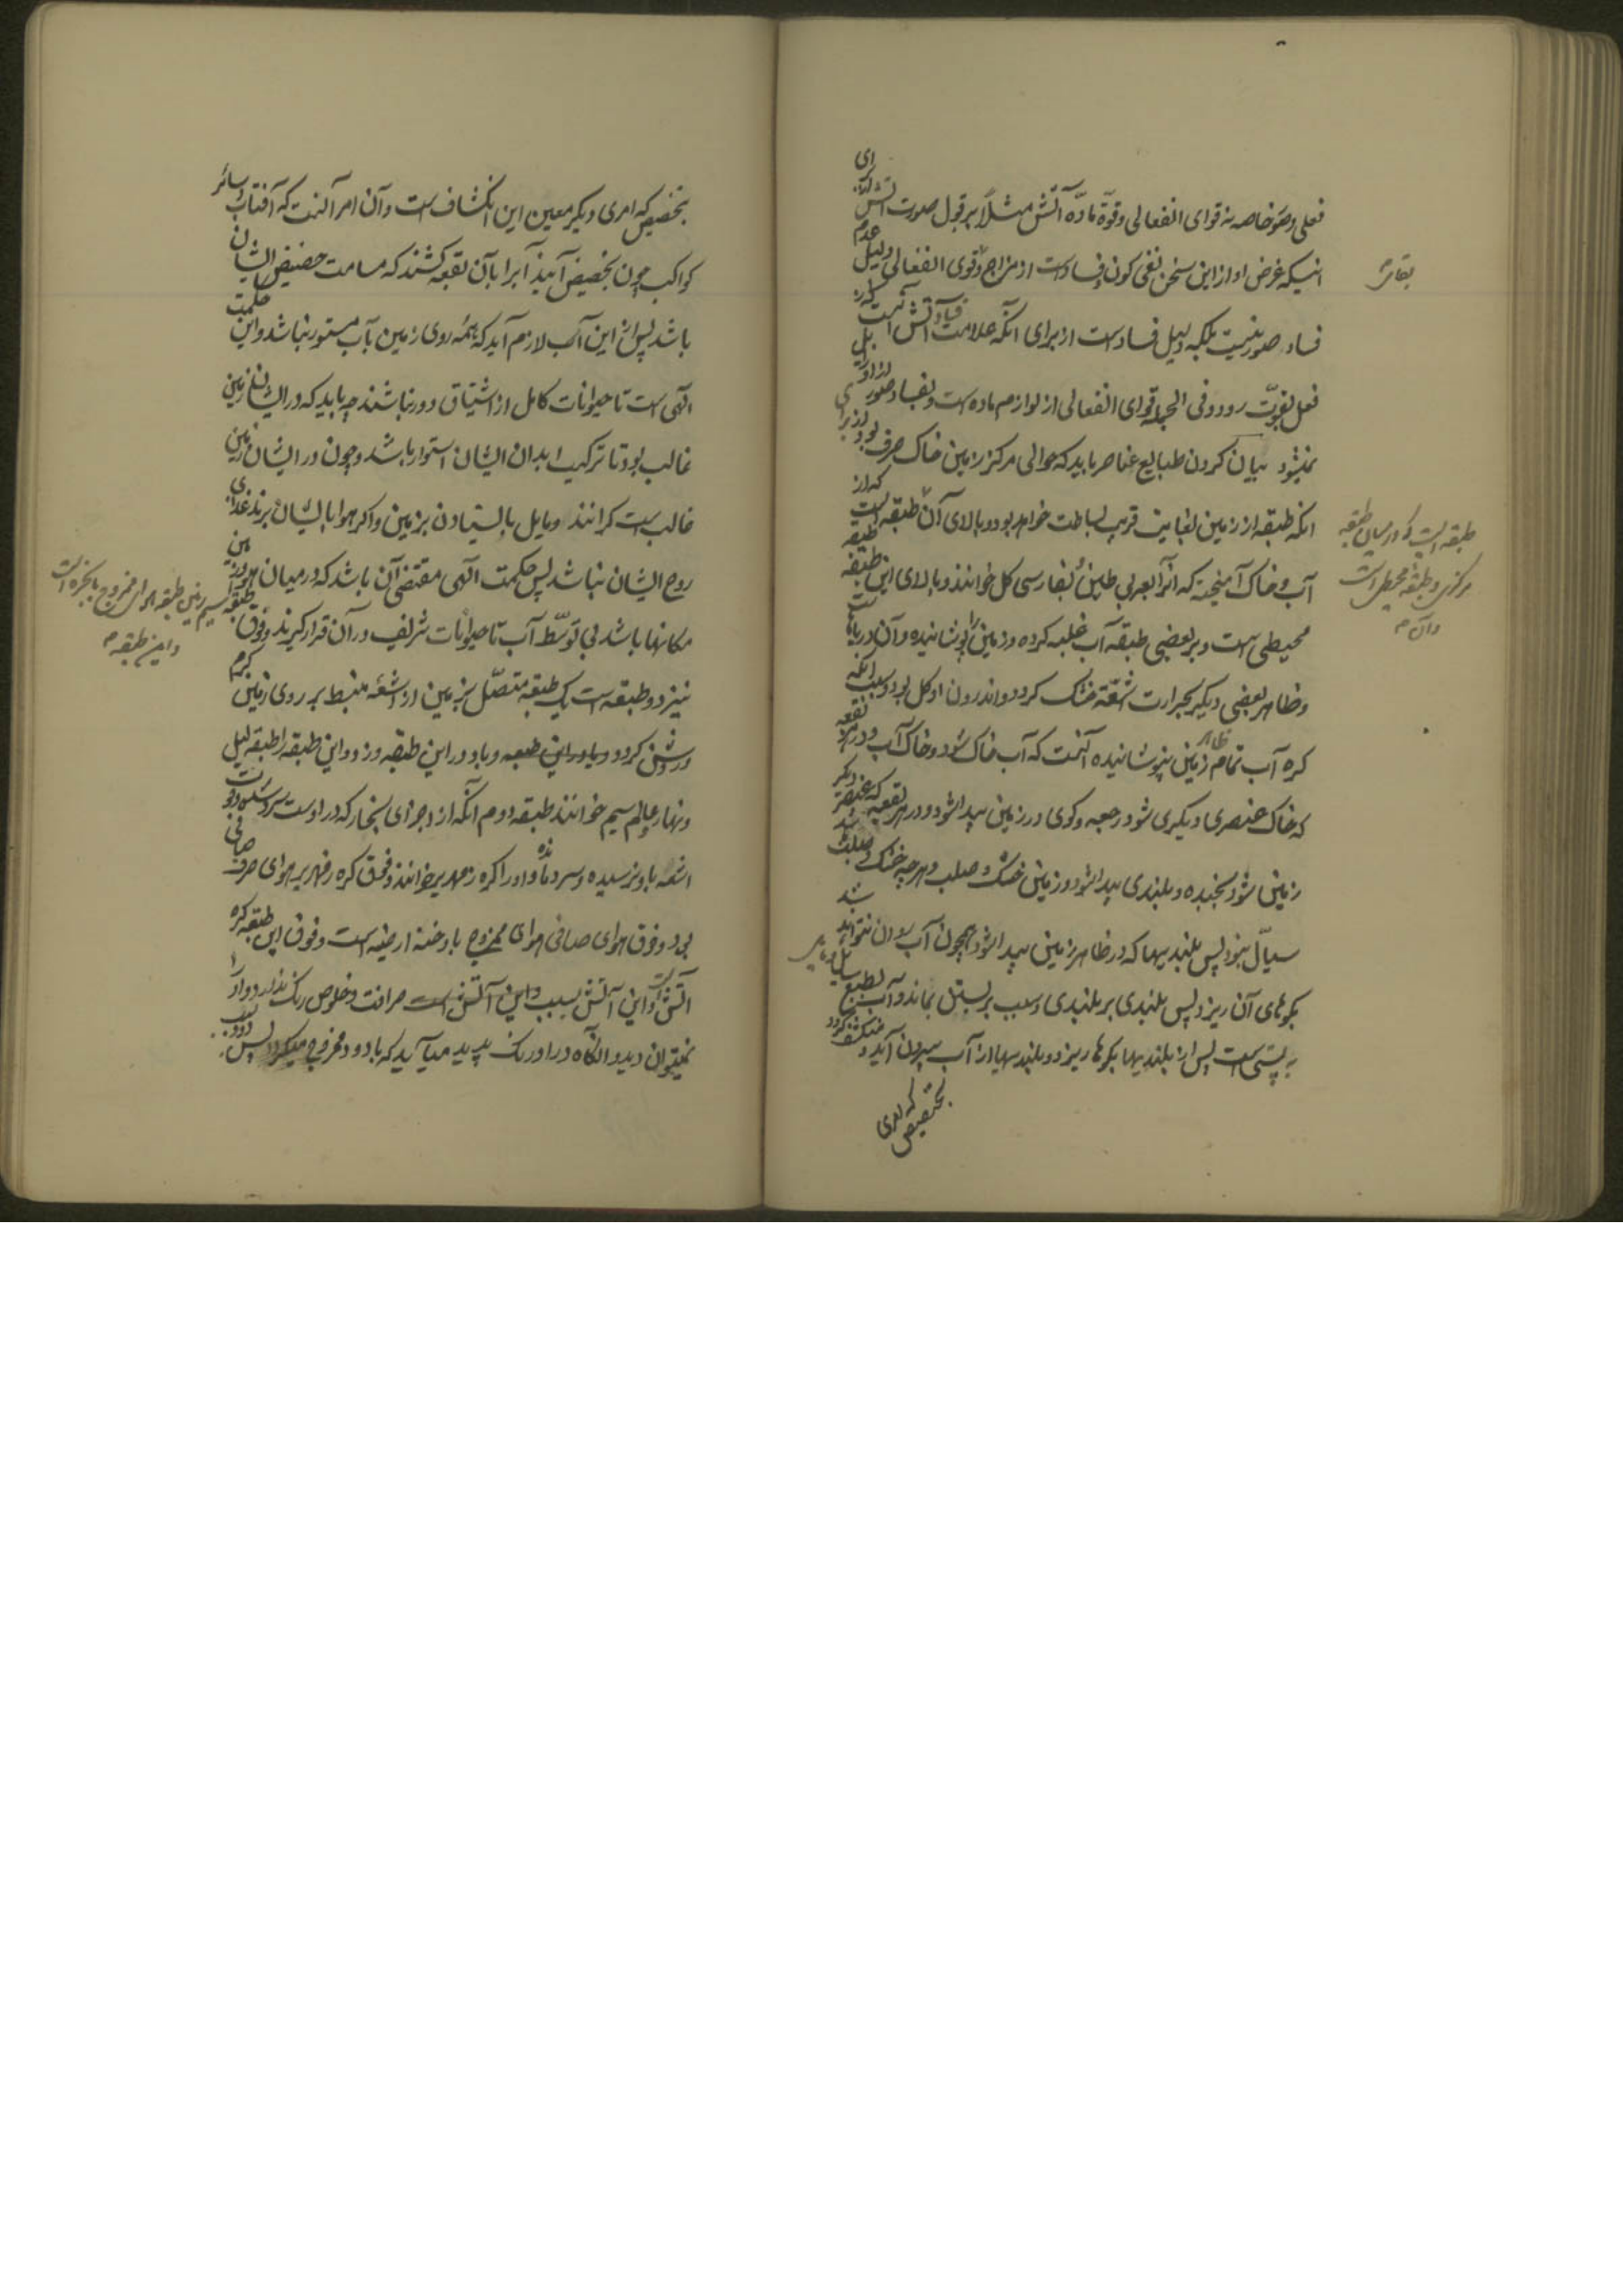 فعلی و صور خاصه نه قوای انفعالی و قوة مادّه آتش مثلاً بر قبول صورت آتش ای
اینکه غرض او از این سخن نفی کون و فساد است از مزاج و قوی انفعالی دلیل عدم
فساد صور نیست بلکه دلیل فساد است از برای آنکه علامت فساد آتش آنست که از
فعل بقوّت رود و فی الجمله قوای انفعالی از لوازم ماده است و بفساد صور زایل
نمیشود بیان کردن طبایع عناصر باید که حوالی مرکز زمین خاک صرف بود از برای
آنکه طبقه از زمین بغایت قریب بساطت خواهد بود و بالای آن طبقه است که از
آب و خاک آمیخته که آنرا بعربی طین و بفارسی کل خوانند و بالای این طبقه طبقه
محیطی است و بر بعضی طبقه آب غلبه کرده و زمین را پوشانیده و آن دریاها است
و ظاهر بعضی دیگر بحرارت اشعّه خشک کردد و اندرون او کل بود و سبب آنکه
کره آب تمام ظاهر زمین نپوشانیده آنست که آب خاک شود و خاک آب و در هر بقعه
که خاک عنصری دیگری شود رجعه و کوی در زمین پیدا شود و در هر بقعه که عنصر دیگر
زمین شود بجنبده و بلندی پیدا شود و زمین خشک و صلب و هر چه خشک و صلب باشد
سیّال نبود پس بلندیها که در ظاهر زمین پیدا شود همچون آب روان نتواند شد
بکوهای آن ریزد پس بلندی بر بلندی و سبب بر پستی بماند و آب بطبع مایل
به پستی است پس از بلندیها بکوها ریزد و بلندیها از آب بیرون آید و منکشف کردد
بتخصیص که امری
طبقه است که در میان طبقه
مرکزی و طبقه محیطی است
و آن م
بتخصیص که امری دیگر معین این انکشاف است و آن امر آنست که آفتاب و سائر
کواکب چون بحضیض آیند آب را بآن بقعه کشند که مسامت حضیض ایشان
باشد پس از این سبب لازم آید که همه روی زمین بآب مستور نباشد و این حکمت
الهی است تا حیوانات کامل از اشتیاق دور نباشند چه باید که در ایشان زمین
غالب بود تا ترکیب ابدان ایشان استوار باشد و چون در ایشان زمین
غالب است کرانند و مایل بایستادن بر زمین و اکر هوا بایشان نرسد غذای
روح ایشان نباشد پس حکمت الهی مقتضی آن باشد که در میان زمین
مکانها باشد بی توسّط آب تا حیوانات شریف در آن قرار کیرند و فوق طبقه
نیز دو طبقه است یک طبقه متصّل بزمین از اشعه منبسط بر روی زمین کرم
و روشن کردد و باد در این طبقه وزد و این طبقه را طبقه لیل
و نهار و عالم نسیم خوانند طبقه دوم آنکه از اجزای بخار که در اوست سرد شده و
اشعه باو نرسیده و سرد مانده و او را کره زمهریر خوانند و فوق کره زمهریر هوای صرف صافی
بود و فوق هوای صافی هوای ممزوج با دخنه ارضیه است و فوق این طبقه کره
آتش است و این آتش بسبب صرافت و خلوص رنک ندارد و او را
نمیتوان دید و آنکاه در او رنک پدید میآید که با دود ممزوج میکردد پس
نسیم و این طبقه هوای ممزوج بابخره است
و این طبقه م